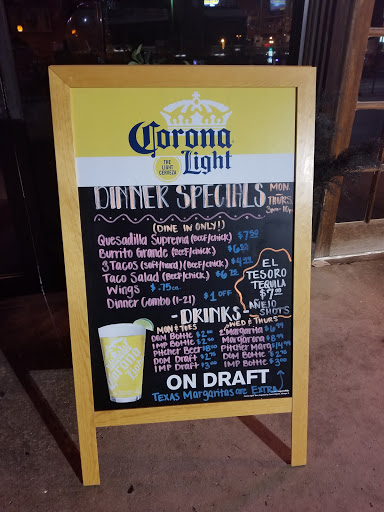 Corona
THE LIGHT CERVEZA
Light
DINNER SPECIALS
MON. THURS.
3pm-10p
(DINE IN ONLY!)
Quesadilla Suprema (Beef/chick)
Burrito Grande (Beef/chick)
3 Tacos (soft/hard) (Beef/chick)
Taco Salad (Beef/chick)
Wings $.75 ea.
Dinner Combo (1-21) $1 OFF
EL
TESORO
TEQUILA
AÑEJO
SHOTS
-DRINKS-
MON & TUES
DOM Bottle
IMP Bottle
Pitcher Beer
DOM Draft
IMP Draft
WED & THURS
2 Margarita
Margarona
Pitcher Marg
DOM Bottle
IMP Bottle
ON DRAFT
TEXAS Margaritas are EXTRA